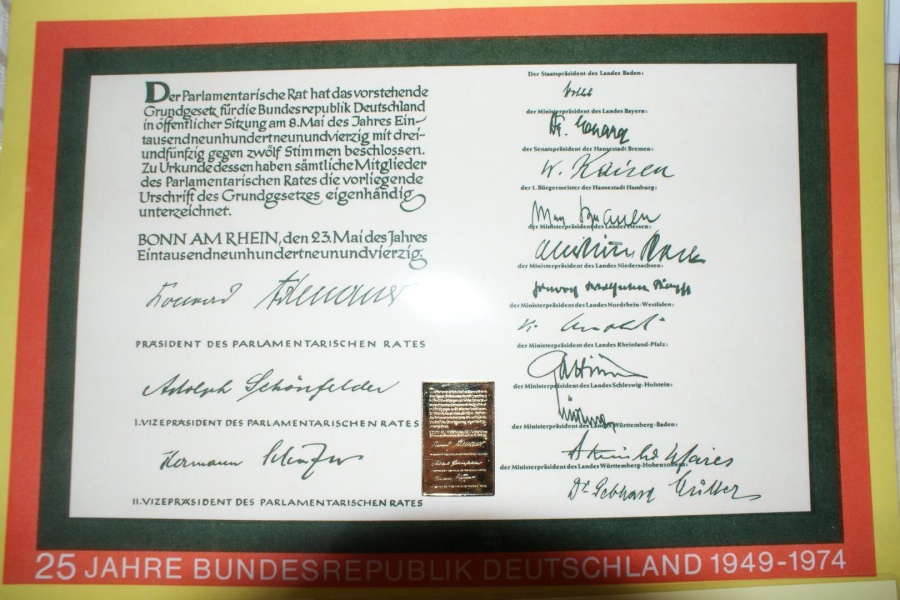 Der Parlamentarische Rat hat das vorstehende
Grundgesetz für die Bundesrepublik Deutschland
in öffentlicher Sitzung am 8. Mai des Jahres Ein-
tausendneunhundertneunundvierzig mit drei-
undfünfzig gegen zwölf Stimmen beschlossen.
Zu Urkunde dessen haben sämtliche Mitglieder
des Parlamentarischen Rates die vorliegende
Urschrift des Grundgesetzes eigenhändig
unterzeichnet.
BONN AM RHEIN, den 23. Mai des Jahres
Eintausendneunhundertneunundvierzig.
Konrad Adenauer
PRÄSIDENT DES PARLAMENTARISCHEN RATES
Adolph Schönfelder
I. VIZEPRÄSIDENT DES PARLAMENTARISCHEN RATES
Hermann Schäfer
II. VIZEPRÄSIDENT DES PARLAMENTARISCHEN RATES
Der Staatspräsident des Landes Baden:
der Ministerpräsident des Landes Bayern:
Dr.
der Senatspräsident der Hansestadt Bremen:
W. Kaisen
der 1. Bürgermeister der Hansestadt Hamburg:
Max Brauer
der Ministerpräsident des Landes Hessen:
Christian Stock
der Ministerpräsident des Landes Niedersachsen:
der Ministerpräsident des Landes Nordrhein-Westfalen:
K. Arnold
der Ministerpräsident des Landes Rheinland-Pfalz:
der Ministerpräsident des Landes Schleswig-Holstein:
der Ministerpräsident des Landes Württemberg-Baden:
der Ministerpräsident des Landes Württemberg-Hohenzollern:
Dr. Gebhard Müller
25 JAHRE BUNDESREPUBLIK DEUTSCHLAND 1949-1974